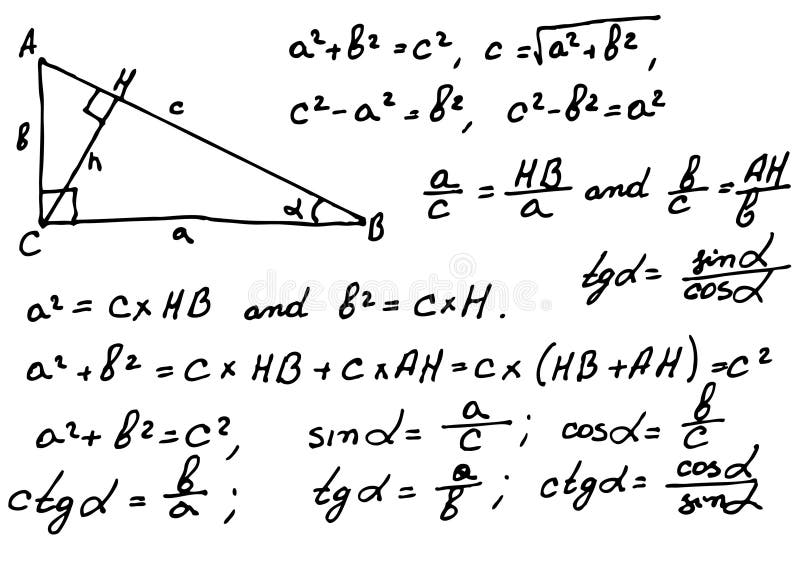 A
H
c
b
h
C
a
α
B
a²+b²=c², c=√a²+b²,
c²-a²=b², c²-b²=a²
a/c = HB/a and b/c = AH/b
tgα = sinα/cosα
a² = c×HB and b² = c×H.
a²+b² = c×HB+c×AH=c×(HB+AH)=c²
a²+b²=c², sinα = a/c; cosα = b/c
ctgα = b/a; tgα = a/b; ctgα = cosα/sinα
dreamstime